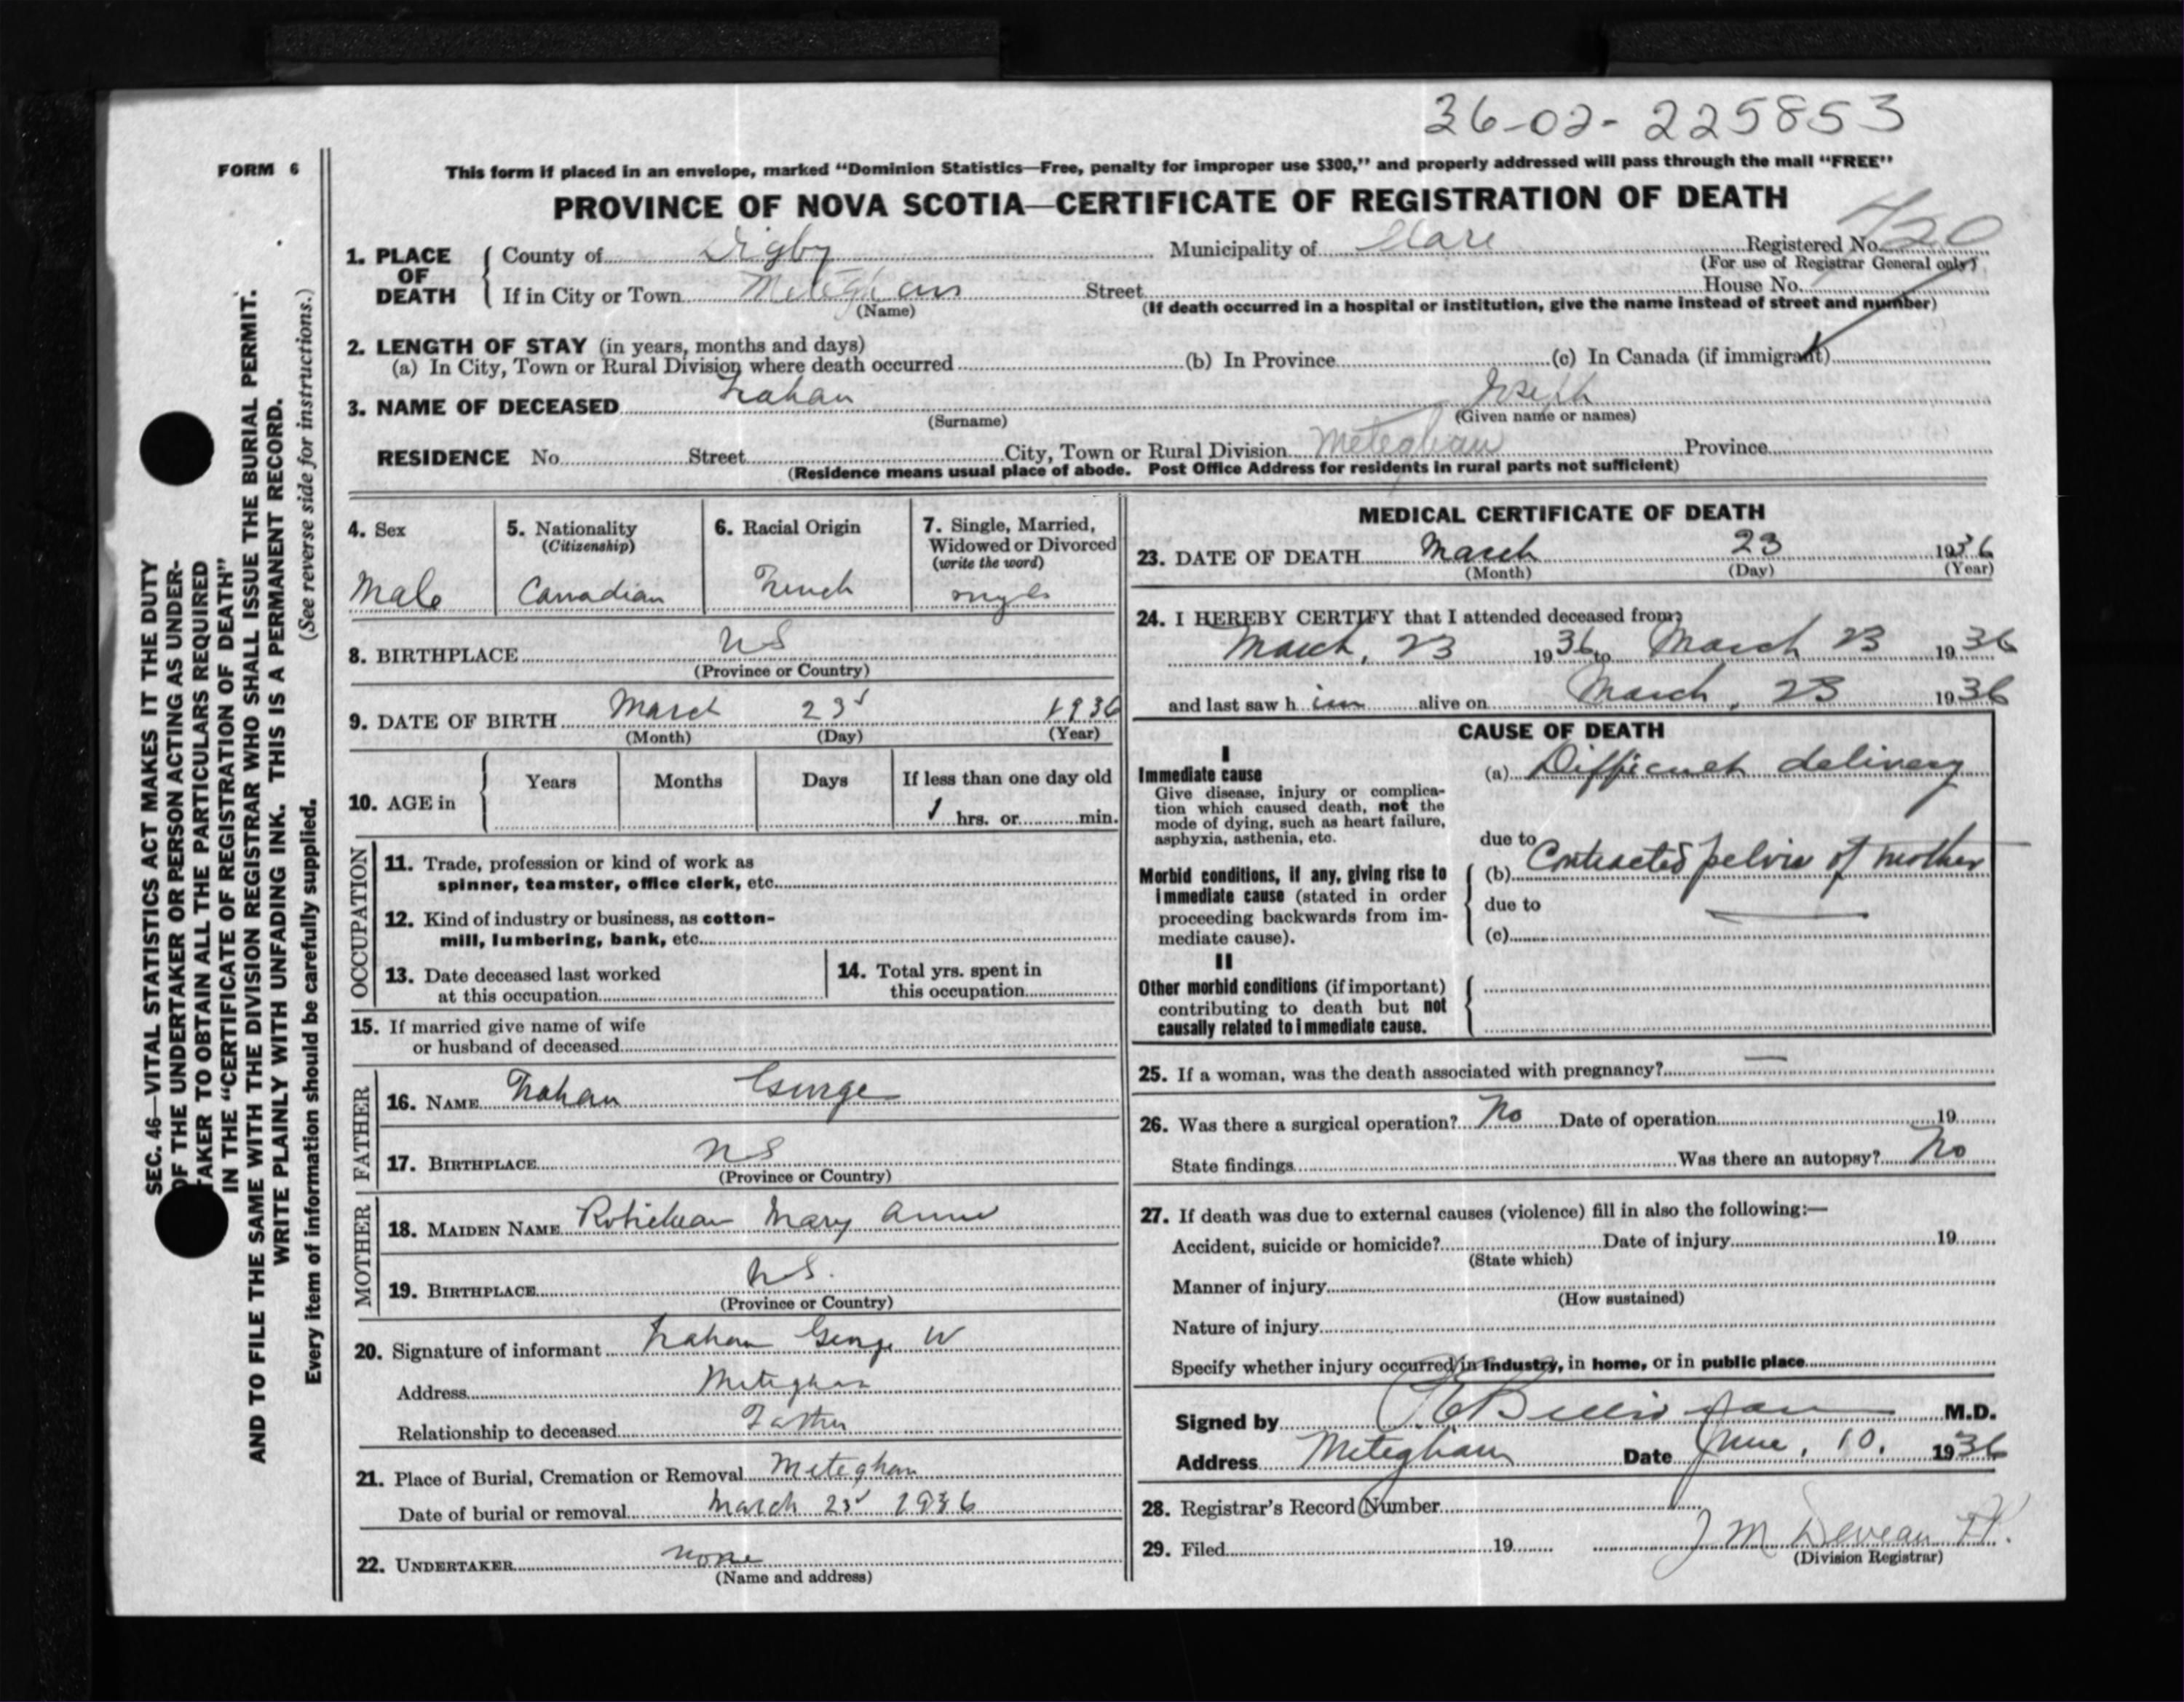 36-02-225853
FORM 6
This form if placed in an envelope, marked "Dominion Statistics—Free, penalty for improper use $300," and properly addressed will pass through the mail "FREE"
PROVINCE OF NOVA SCOTIA—CERTIFICATE OF REGISTRATION OF DEATH
420
1. PLACE OF DEATH
County of Digby Municipality of Clare Registered No.
(For use of Registrar General only)
If in City or Town Meteghan Street House No.
(Name) (If death occurred in a hospital or institution, give the name instead of street and number)
2. LENGTH OF STAY (in years, months and days)
(a) In City, Town or Rural Division where death occurred (b) In Province (c) In Canada (if immigrant)
3. NAME OF DECEASED Trahan Joseph
(Surname) (Given name or names)
RESIDENCE No. Street City, Town or Rural Division Meteghan Province
(Residence means usual place of abode. Post Office Address for residents in rural parts not sufficient)
4. Sex
Male
5. Nationality
(Citizenship)
Canadian
6. Racial Origin
French
7. Single, Married,
Widowed or Divorced
(write the word)
8. BIRTHPLACE NS
(Province or Country)
9. DATE OF BIRTH March 23 1936
(Month) (Day) (Year)
10. AGE in
Years Months Days If less than one day old
1 hrs. or min.
OCCUPATION
11. Trade, profession or kind of work as
spinner, teamster, office clerk, etc.
12. Kind of industry or business, as cotton-
mill, lumbering, bank, etc.
13. Date deceased last worked
at this occupation
14. Total yrs. spent in
this occupation
15. If married give name of wife
or husband of deceased
FATHER
16. NAME Trahan George
17. BIRTHPLACE NS
(Province or Country)
MOTHER
18. MAIDEN NAME Robicheau Mary Anne
19. BIRTHPLACE N.S.
(Province or Country)
20. Signature of informant Trahan George W
Address Meteghan
Relationship to deceased Father
21. Place of Burial, Cremation or Removal Meteghan
Date of burial or removal March 23 1936
22. UNDERTAKER none
(Name and address)
MEDICAL CERTIFICATE OF DEATH
23. DATE OF DEATH March 23 1936
(Month) (Day) (Year)
24. I HEREBY CERTIFY that I attended deceased from:
March, 23 1936 to March 23 1936
and last saw h im alive on March, 23 1936
CAUSE OF DEATH
I
Immediate cause
Give disease, injury or complica-
tion which caused death, not the
mode of dying, such as heart failure,
asphyxia, asthenia, etc.
(a) Difficult delivery
due to
Morbid conditions, if any, giving rise to
immediate cause (stated in order
proceeding backwards from im-
mediate cause).
(b) Contracted pelvis of mother
due to
(c)
II
Other morbid conditions (if important)
contributing to death but not
causally related to immediate cause.
25. If a woman, was the death associated with pregnancy? —
26. Was there a surgical operation? No Date of operation 19
State findings Was there an autopsy? No
27. If death was due to external causes (violence) fill in also the following:—
Accident, suicide or homicide? Date of injury 19
(State which)
Manner of injury
(How sustained)
Nature of injury
Specify whether injury occurred in industry, in home, or in public place
Signed by M.D.
Address Meteghan Date June, 10. 1936
28. Registrar's Record Number
29. Filed 19 J M Deveau
(Division Registrar)
SEC. 46—VITAL STATISTICS ACT MAKES IT THE DUTY
OF THE UNDERTAKER OR PERSON ACTING AS UNDER-
TAKER TO OBTAIN ALL THE PARTICULARS REQUIRED
IN THE "CERTIFICATE OF REGISTRATION OF DEATH"
AND TO FILE THE SAME WITH THE DIVISION REGISTRAR WHO SHALL ISSUE THE BURIAL PERMIT.
WRITE PLAINLY WITH UNFADING INK. THIS IS A PERMANENT RECORD.
Every item of information should be carefully supplied. (See reverse side for instructions.)